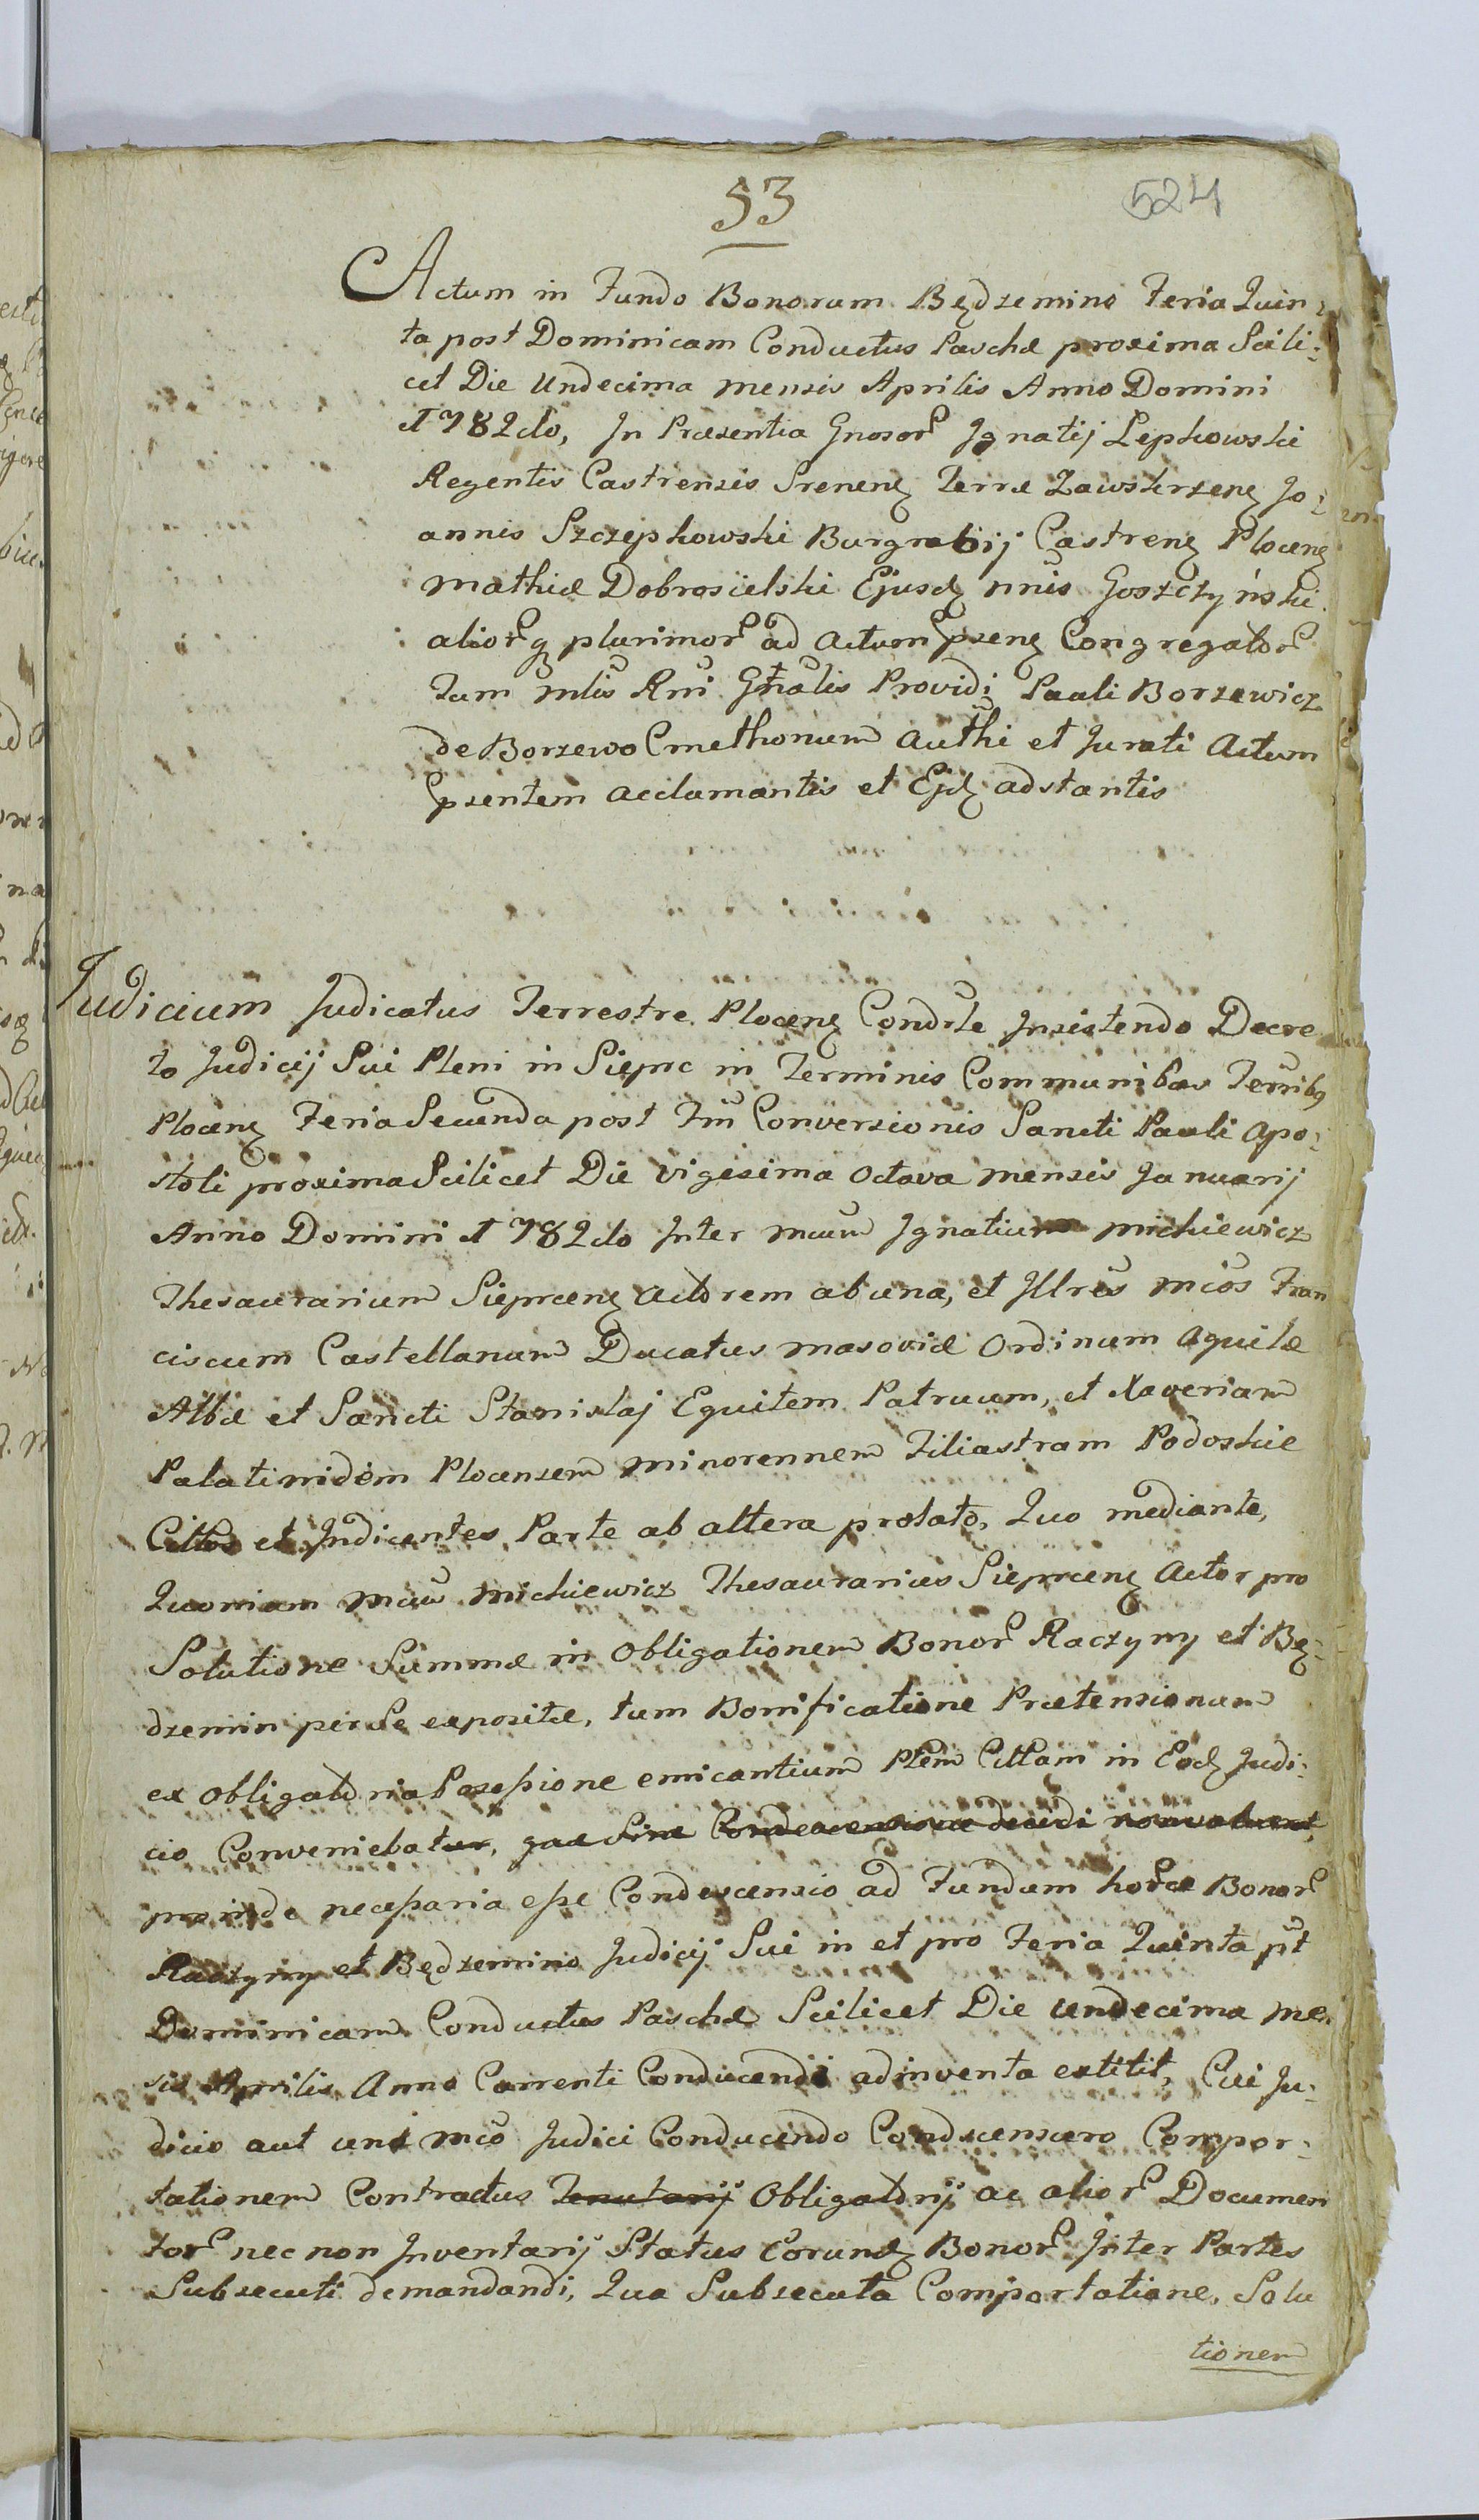 53
524
Actum in Fundo Bonorum Będzemino Feria Quin
ta post Dominicam Conductus Paschæ proxima Scili:
cet Die Undecima mensis Aprilis Anno Domini
1782do, In Præsentia Gnosor Ignatij Lepkowski
Regentis Castrensis Srenenę Terræ Zawskrzenę Jo:
annis Szczepkowski Burgrabij Castrenę Plocenę
Mathiæ Dobrosielski Ejusdę nnis Goszczyński
alior q plurimor ad Actum psenę Congregator
Tum mlis Rni Gnalis Providi Pauli Borzewicz
de Borzewo Cmethonum Authi et Jurati Actum
psentem acclamantis et Ejdę adstantis
Judicium Judicatus Terrestre Plocenę Condrle Insistendo Decre
to Judicij Sui Pleni in Sieprc in Terminis Communibus Terribq
Plocenę Feria Secunda post Ftu Conversionis Sancti Pauli Apo:
stoli proxima Scilicet Die vigesima octava mensis Januarij
Anno Domini 1782do Inter mcum Ignatium Mickiewicz
Thesaurarium Sieprcenę Actorem ab una, et Illres mcos Fran
ciscum Castellanum Ducatus Masoviæ Ordinum Aquilæ
Albæ et Sancti Stanislaj Equitem Patruum, et Xaveriam
Palatinidem Plocensem minorennem Filiastram Podoskie
Cittos et Indicentes Parte ab altera prolato, Quo mediante,
Quoniam mcus Mickiewicz Thesaurarius Sieprcenę Actor pro
Solutione Summæ in Obligationem Bonor Raczyny et Bę:
dzemin per Se expositæ, tum Bonificatione Prætensionum
ex obligatoria Possessione emicantium Ptem Cittam in Eodę Judi:
cio Conveniebatur, quæ Sine Condescensione decidi non valuerat
proinde necessaria esse Condescensio ad Fundum horce Bonor
Raczyny et Będzemino Judicij Sui in et pro Feria Quinta pt
Dominicam Conductus Paschæ Scilicet Die undecima men
sis Aprilis Anno Currenti Conducendi adinventa extitit, Cui Ju:
dicio aut uni mco Judici Conducendo Condscensuro Compor:
tationem Contractus Tenutarij Obligatorij ac alior Documen
tor nec non Inventarij Status Eorundę Bonor Inter Partes
Subsecuti demandandi, Qua Subsecuta Comportatione, Solu
tionem